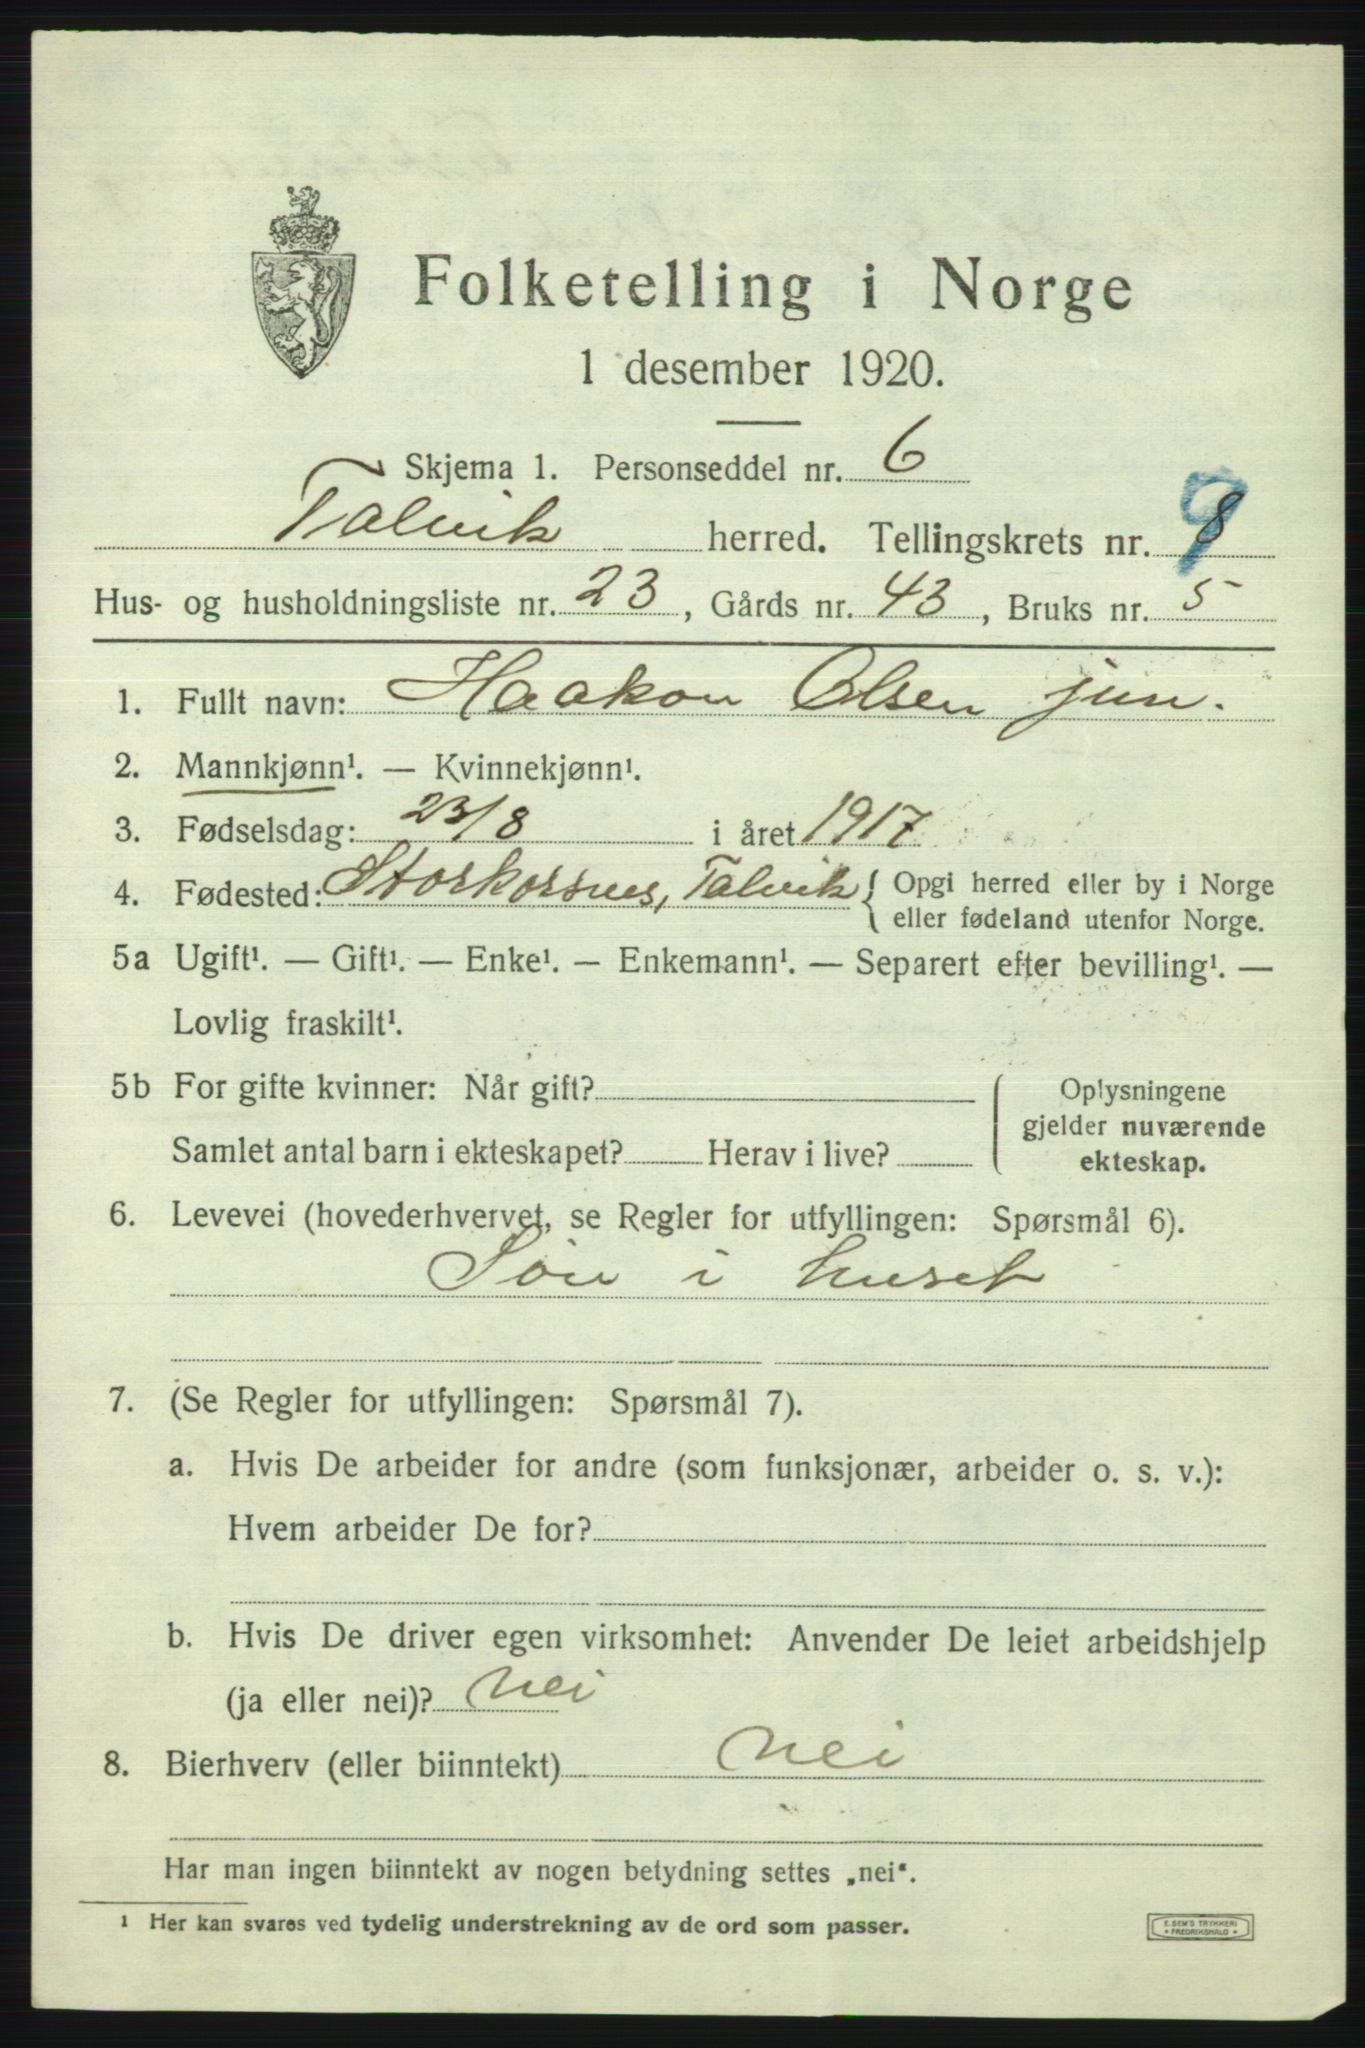 Folketelling i Norge
1 desember 1920.
Skjema 1. Personseddel nr. 6
Talvik herred. Tellingskrets nr. 8 9
Hus- og husholdningsliste nr. 23, Gårds nr. 43, Bruks nr. 5
1. Fullt navn: Haakon Olsen jun.
2. Mannkjønn¹. — Kvinnekjønn¹.
3. Fødselsdag: 23/8 i året 1917
4. Fødested: Storkorsnes, Talvik { Opgi herred eller by i Norge
eller fødeland utenfor Norge.
5a Ugift¹. — Gift¹. — Enke¹. — Enkemann¹. — Separert efter bevilling¹. —
Lovlig fraskilt¹.
5b For gifte kvinner: Når gift?
Samlet antal barn i ekteskapet? Herav i live?
Oplysningene
gjelder nuværende
ekteskap.
6. Levevei (hovederhvervet, se Regler for utfyllingen: Spørsmål 6).
Søn i huset
7. (Se Regler for utfyllingen: Spørsmål 7).
a. Hvis De arbeider for andre (som funksjonær, arbeider o. s. v.):
Hvem arbeider De for?
b. Hvis De driver egen virksomhet: Anvender De leiet arbeidshjelp
(ja eller nei)? nei
8. Bierhverv (eller biinntekt) nei
Har man ingen biinntekt av nogen betydning settes „nei“.
¹ Her kan svares ved tydelig understrekning av de ord som passer.
E. SEM'S TRYKKERI
FREDRIKSHALD